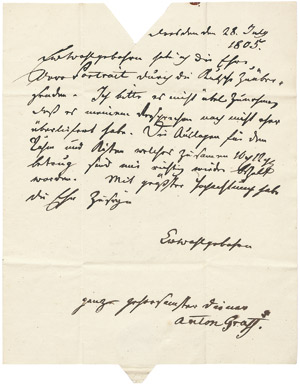 Dresden den 28. July
1805.
Ew Wohlgebohren habe ich die Ehre
Dero Portrait durch die Kutsche zu über-
senden. Ich bitte es nicht übel zu nehmen
daß es meinem Versprechen nach nicht eher
überliefert habe. Die Auslagen für den
Rahm und Kisten welches zusamen 10
betrug sind mir richtig wieder bezalt
worden. Mit größter Hochachtung habe
die Ehre zu seyn
Ew Wohlgebohren
ganz gehorsamster diener
Anton Graff.